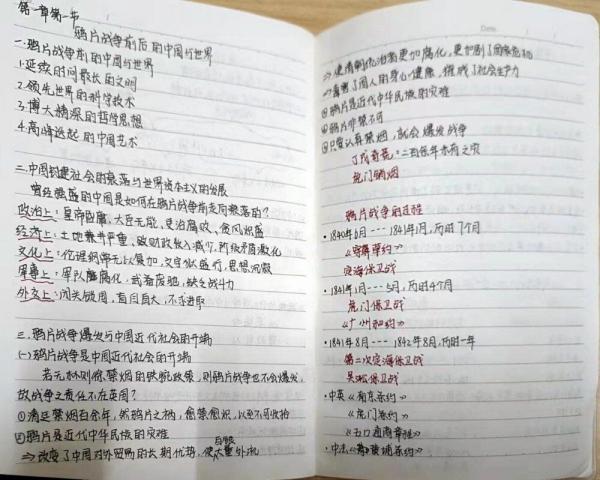 第一章第一节
鸦片战争前后的中国与世界
一.鸦片战争前的中国与世界
1.延续时间最长的文明
2.领先世界的科学技术
3.博大精深的哲学思想
4.高峰迭起的中国艺术
二.中国封建社会的衰落与世界资本主义的发展
曾经强盛的中国是如何在鸦片战争前走向衰落的?
政治上:皇帝昏庸,大臣无能,吏治腐败,贪风炽盛
经济上:土地兼并严重,致财政收入减少,阶级矛盾激化
文化上:伦理纲常无以复加,文字狱盛行,思想沉寂
军事上:军队腐化,武备废弛,缺乏战斗力
外交上:闭关锁国,盲目自大,不求进取
三.鸦片战争爆发与中国近代社会的开端
(一)鸦片战争是中国近代社会的开端
若无林则徐禁烟的铁腕政策,则鸦片战争也不会爆发,
故战争之责任不在英国?
①清廷禁烟百余年,然鸦片之祸,愈禁愈炽,以至不可收拾
②鸦片是近代中华民族的灾难
⇒改变了中国对外贸易的长期优势,使白银大量外流
⇒使清朝统治者更加腐化,更加剧了国家危机
⇒毒害了国人的身心健康,摧残了社会生产力
③鸦片是近代中华民族的灾难
④鸦片非禁不可
⑤只要认真禁烟,就会爆发战争
丁戊奇荒:二百余年未有之灾
虎门销烟
鸦片战争的过程
·1840年6月---1841年1月,历时7个月
《穿鼻草约》
定海保卫战
·1841年1月---5月,历时4个月
虎门保卫战
《广州和约》
·1841年8月---1842年8月,历时一年
第二次定海保卫战
吴淞保卫战
·中英《南京条约》
《虎门条约》
《五口通商章程》
·中法《黄埔条约》